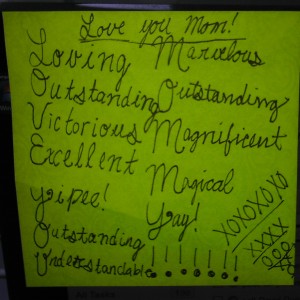 Love you Mom!
Loving Marvelous
Outstanding Outstanding
Victorious Magnificent
Excellent Magical
Yipee! Yay!
Outstanding ! ! ! ! ! ! !
Understandable
XOXOXOXO
XXXX
OOO